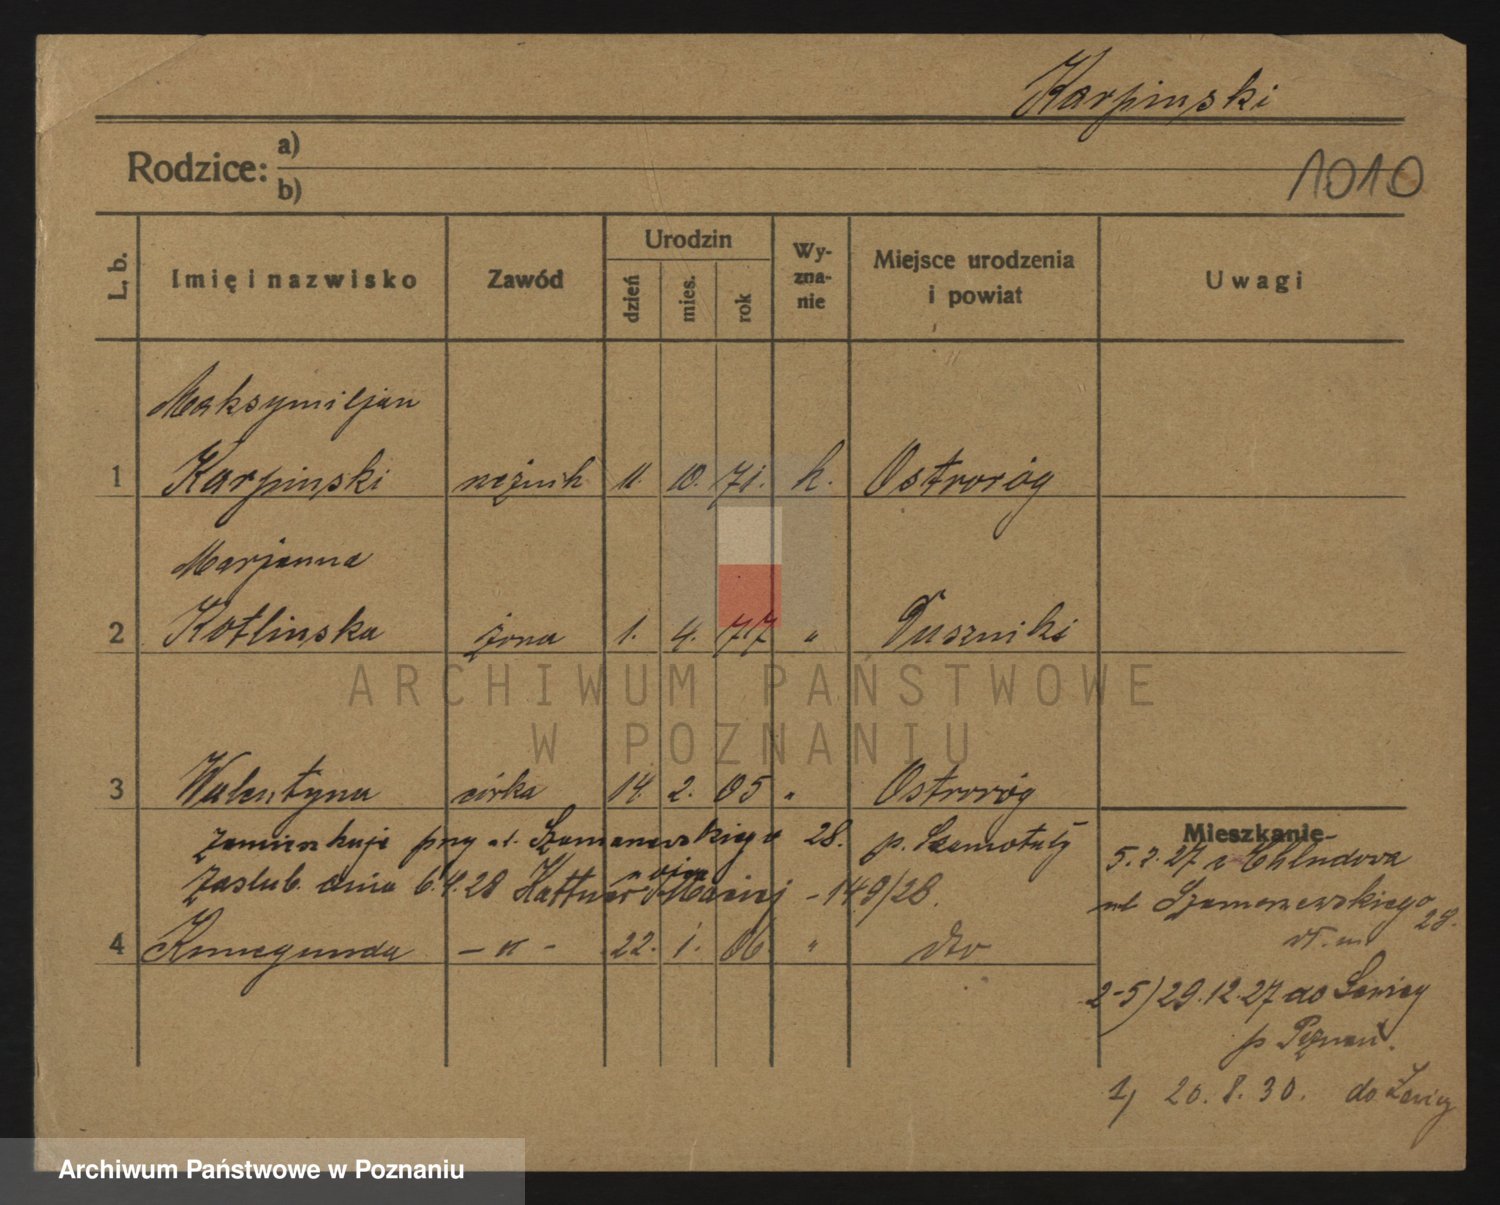 Karpinski
Rodzice: a)
b)
1010
L. b. Imię i nazwisko Zawód Urodzin dzień mies. rok Wy-zna-nie Miejsce urodzenia i powiat Uwagi
Maksymiljan
1 Karpinski 11. 10. 71. k. Ostroróg
Marjanna
2 Kotlinska żona 1. 4. 77 " Duszniki
3 Walentyna córka 14. 2. 05 " Ostroróg
zamieszkuje przy ul. Szamarzewskiego 28. p. Szamotuły
Zaślub. dnia 6.4.28 Maciej - 149/28.
4 Kunegunda - " - 22. 1. 06 " dto
Mieszkanie
5. 2. 27 z Chludowa
ul Szamarzewskiego
28.
2-5) 29.12.27 do
p Poznań.
1) 20. 8. 30. do
ARCHIWUM PAŃSTWOWE
W POZNANIU
Archiwum Państwowe w Poznaniu